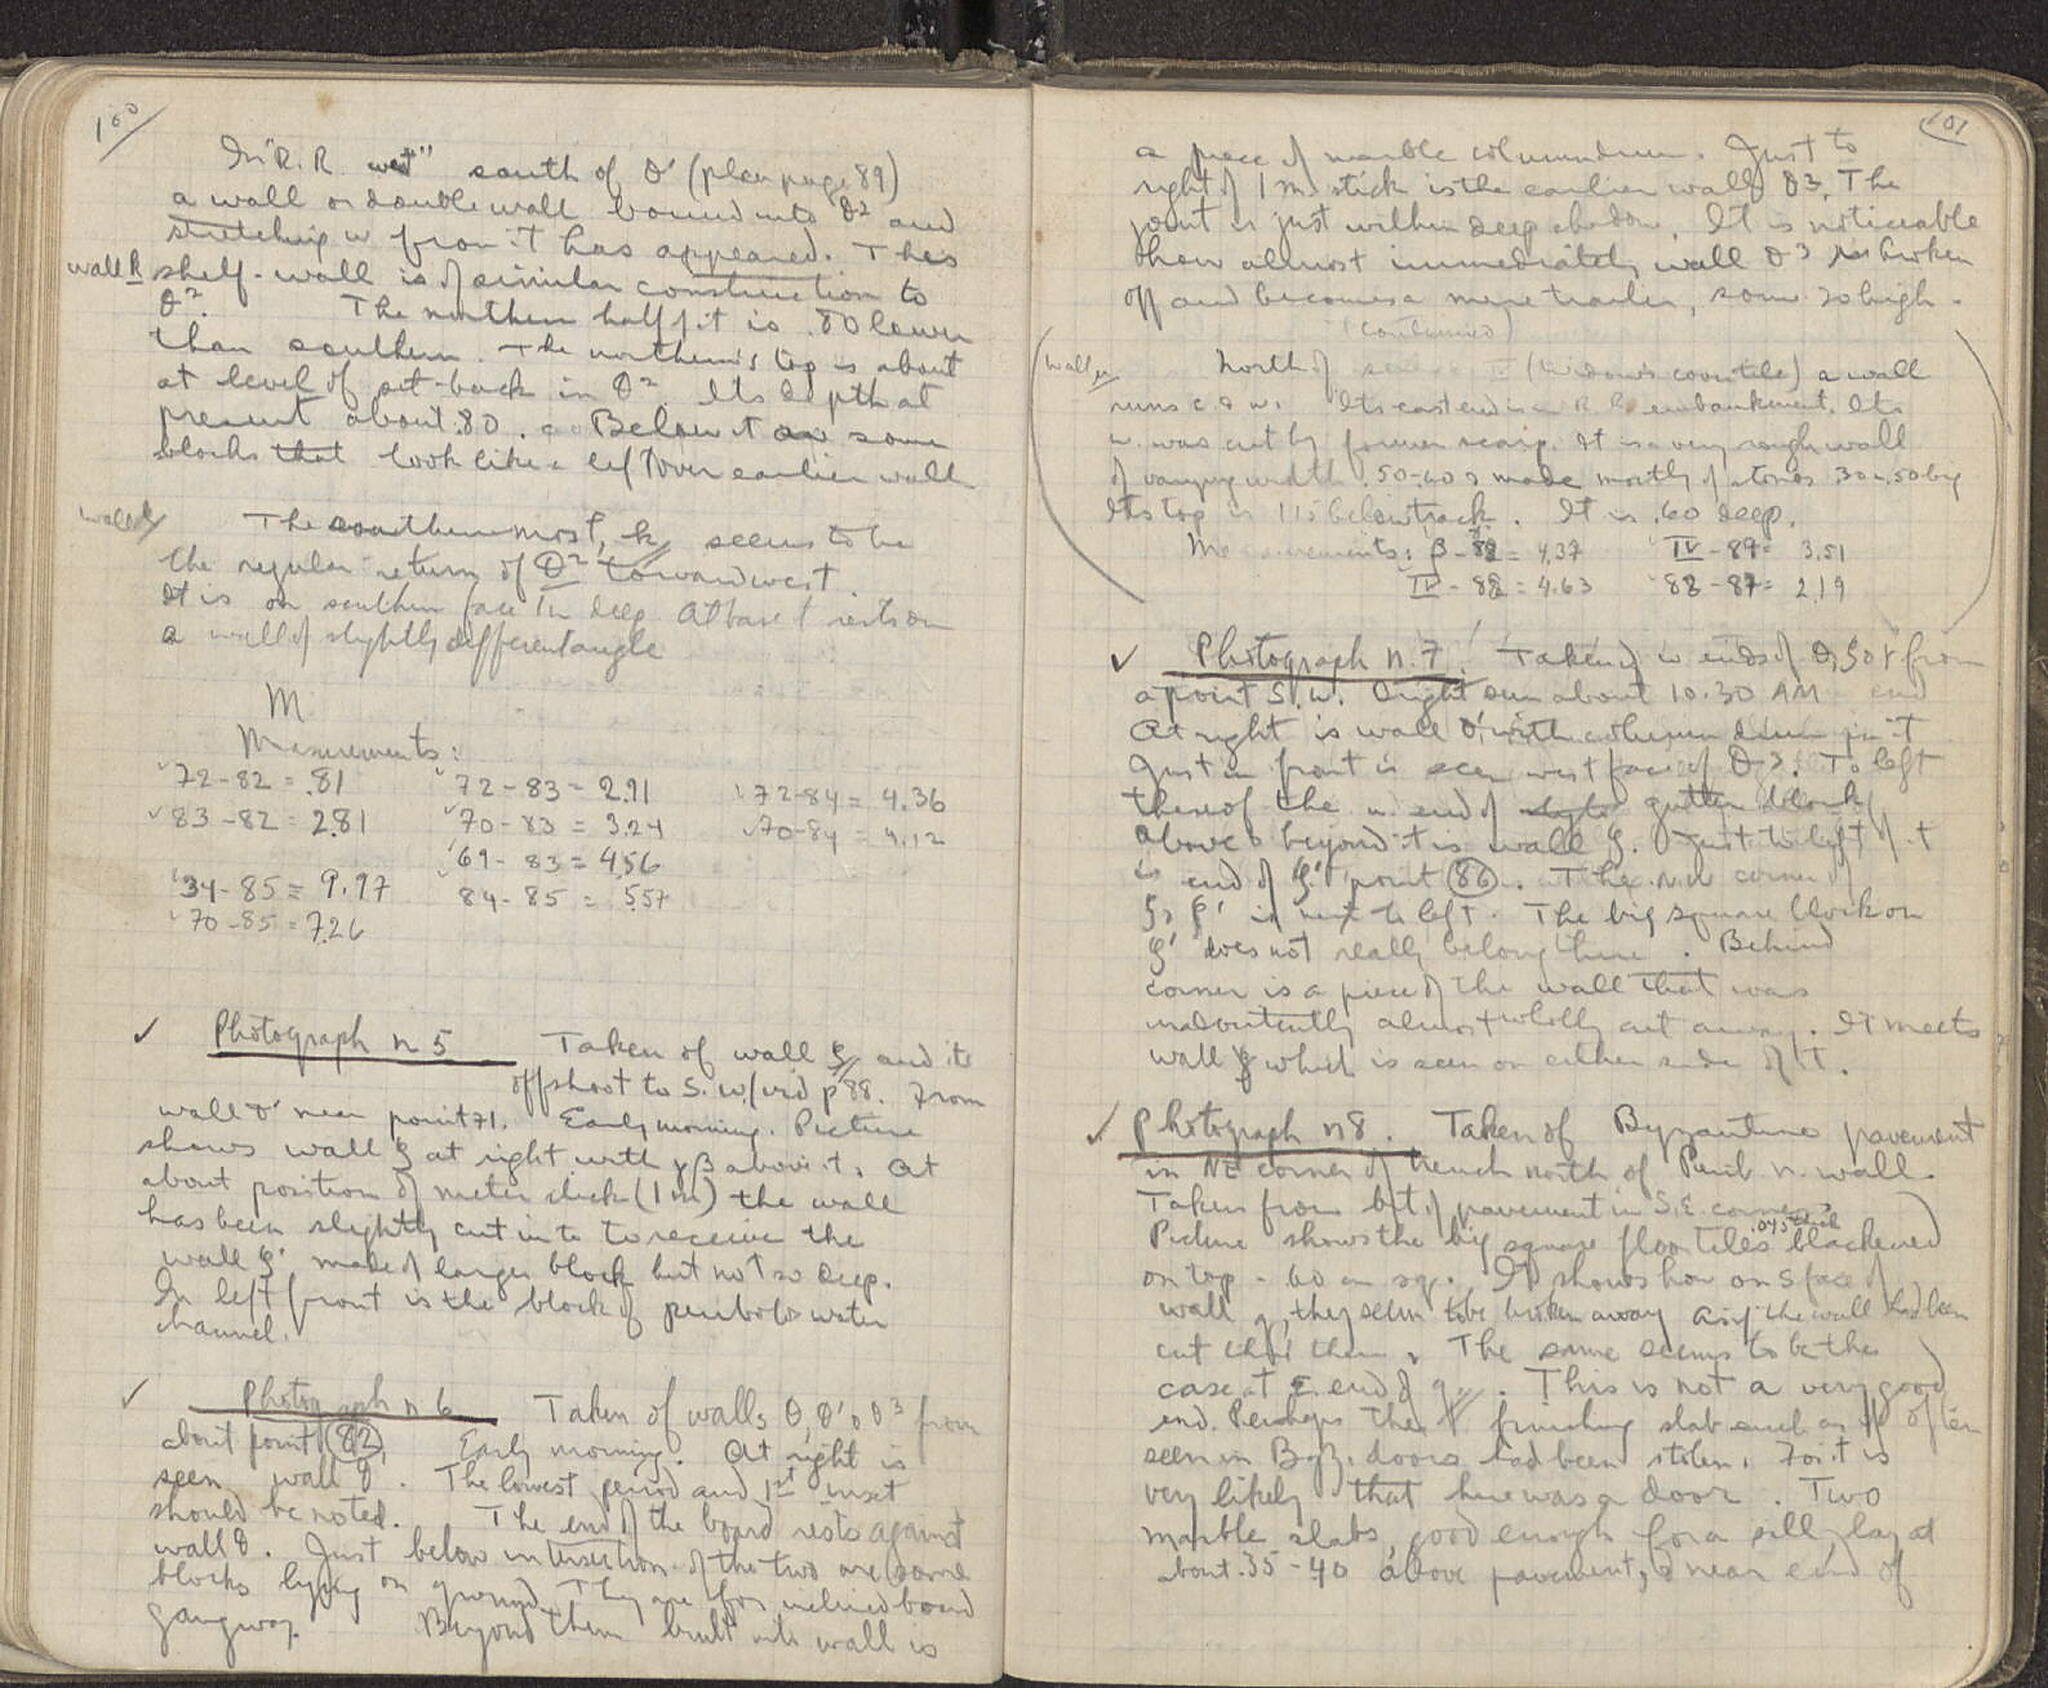 100
In "R.R. west" south of θ' (plan page 89)
a wall or double wall bound into θ² and
stretching w from it has appeared. This
wall k shelf-wall is of similar construction to
θ². The northern half of it is .80 lower
than southern. The northern's top is about
at level of set-back in θ². Its depth at
present about .80. Below it are some
blocks that look like a left over earlier wall
wall k
The southernmost, k, seems to be
the regular return of θ² toward west.
It is on southern face 1m deep. At base it rests on
a wall of slightly different angle
M
Measurements:
72-82 = .81 72-83 = 2.91 72-84 = 4.36
83-82 = 2.81 70-83 = 3.24 70-84 = 4.12
69-83 = 4.56
34-85 = 9.97 84-85 = 5.57
70-85 = 7.26
Photograph n 5 Taken of wall ξ and its
offshoot to S.W. (vid p 88. From
wall θ' near point 71. Early morning. Picture
shows wall ξ at right with γβ above it. At
about position of meter stick (1m) the wall
has been slightly cut into to receive the
wall ξ' made of larger block but not so deep.
In left front is the block of peribolos water
channel.
Photograph n 6 Taken of walls θ, θ' & θ³ from
about point 82, Early morning. At right is
seen wall θ. The lowest period and 1st inset
should be noted. The end of the board rests against
wall θ. Just below intersection of the two are some
blocks lying on ground. They are for inclined board
gangway. Beyond them built into wall is
101
a piece of marble column drum. Just to
right of 1 m. stick is the earlier wall θ3. The
joint is just within deep shadow. It is noticeable
how almost immediately wall θ3 is broken
off and becomes a mere trailer, some 20 high.
(continued)
wall
North of (tile) a wall
runs e. & w. Its east end is in R.R. embankment. Its
w. was cut by former scarp. It is a very rough wall
of varying width .50-60 & made mostly of stones .30 x .50 big
Its top is 1.15 below track. It is .60 deep.
Measurements: β-88 = 4.37 IV-87 = 3.51
IV-88 = 4.63 88-87 = 2.19
Photograph n. 7. Taken of w ends of θ, ξ & γ from
a point S.W. bright sun about 10.30 AM
At right is wall θ', with column drum in it
Just in front is seen west face of θ². To left
thereof the w. end of gutter block
above & beyond it is wall ξ. Just to left of it
is end of ξ' point 86. The N.W. corner of
ξ & ξ' is next to left. The big square block on
ξ' does not really belong there. Behind
corner is a piece of the wall that was
inadvertently almost wholly cut away. It meets
wall ξ which is seen on either side of it.
Photograph n 8. Taken of Byzantine pavement
in NE corner of trench north of Perib. n. wall.
Taken from bit of pavement in S.E. corner.
Picture shows the big square floor tiles .045 thick blackened
on top - 60 cm sq. It shows how on S face of
wall q, they seem to be broken away as if the wall had been
cut thro' them. The same seems to be the
case at E. end of q. This is not a very good
end. Perhaps the finishing slab such as is often
seen in Byz. doors had been stolen. For it is
very likely that here was a door. Two
marble slabs, good enough for a sill, lay at
about .35-40 above pavement, & near end of